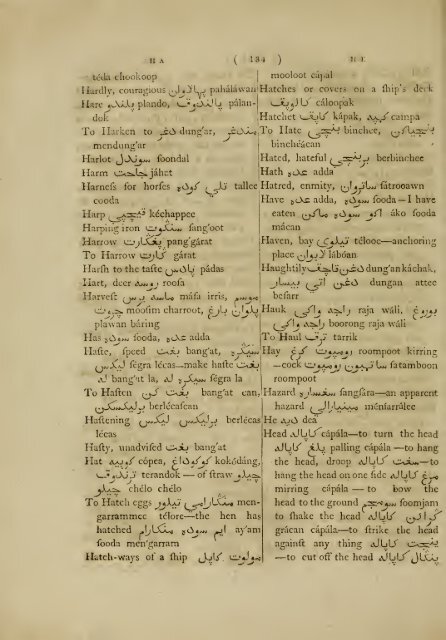 H A ( 134 ) H E
téda chookoop
Hardly, couragious پهلاوان pahálàwan
Hare پلندو plando, پالندوق pálan-
dok
To Harken to دڠر dung'ar, مندڠر
mendung'ar
Harlot سوندل soondal
Harm جاهت jáhet
Harneſs for horſes تلي کوده tallee
cooda
Harp کچاپي kéchappee
Harping iron ſang'oot
Harrow pang'gárat
To Harrow گارت gárat
Harſh to the taſte پادس pádas
Hart, deer روسا roofa
Harveſt ماس ارس máſa irris, موسم
mooſim charroot, بارڠ
plawan báring
Has سوده ſooda, اد adda
Haſte, ſpeed بڠت bang'at, سݢر
ſégra lécas—make haſte بڠت
له bang'ut la, سݢر له ſégra la
To Haſten بڠت bang'at can,
berlécaſcan
Haſtening برلکس لکس berlécas
lécas
Haſty, unadviſed بڠت bang'at
Hat cópea, kokódang,
terandok — of ſtraw چيلو
چيلو chélo chélo
To Hatch eggs تيلور men-
garrammee télore—the hen has
hatched ايم سوده ay'am
ſooda men'garram
Hatch-ways of a ſhip مولوت کاپل
mooloot cápal
Hatches or covers on a ſhip's deck
cáloopak
Hatchet کاپق kápak, campa
To Hate بنچي binchee,
binchéácan
Hated, hateful بربنچي berbinchee
Hath اد adda
Hatred, enmity, ساتروان ſatrooawn
Have اد adda, سوده ſooda—I have
eaten اکو سوده ماکن áko ſooda
mácan
Haven, bay télooc—anchoring
place لابوان lábóan
Haughtily dung'an káchak,
دڠن اتي بيسار dungan attee
beſarr
Hauk راجه والي raja wáli, بوروڠ
راجه والي boorong raja wáli
To Haul تارق tarrik
Hay رومپوت کرڠ roompoot kirring
—cock رومپوت ſatamboon
roompoot
Hazard ſangſára—an apparent
hazard méniarrálee
He دي dea
Head کاپال cápála—to turn the head
کاپال palling cápála—to hang
the head, droop کاپال—to
hang the head on one ſide کاپال
mirring cápála — to bow the
head to the ground ſoomjam
to ſhake the head کاپال
grácan cápála—to ſtrike the head
againſt any thing کاپال
—to cut off the head کاپال